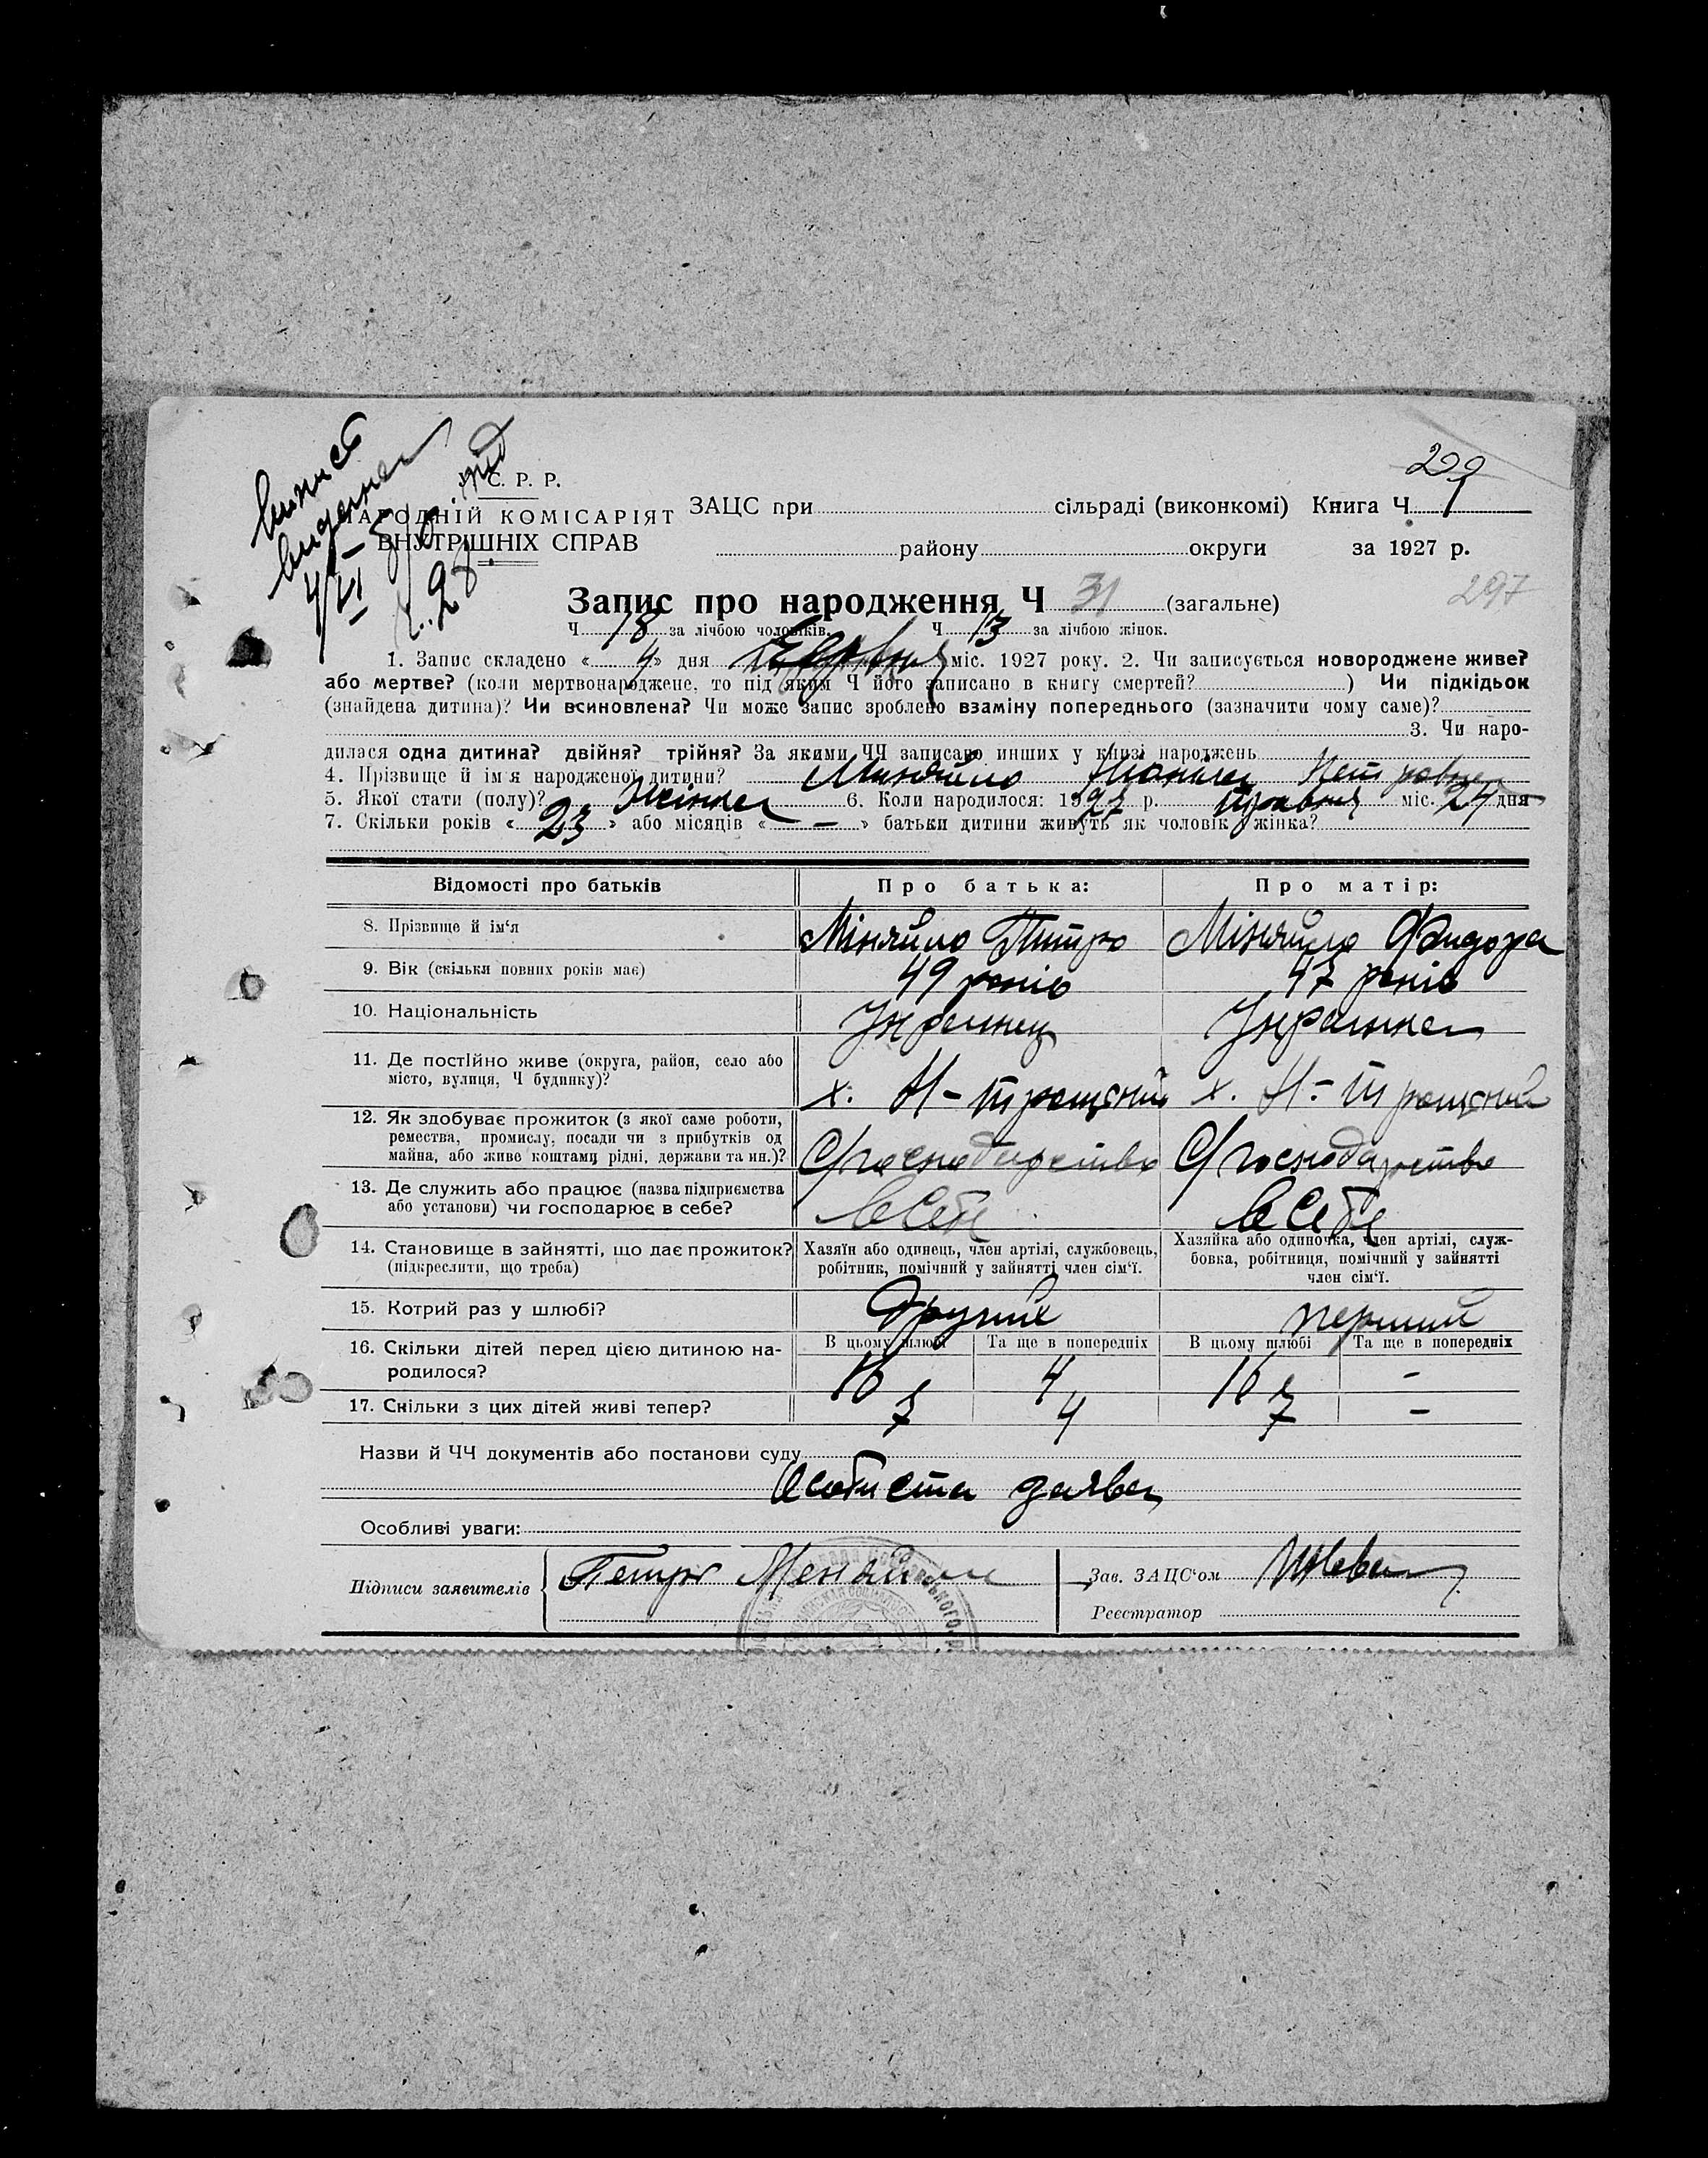 229
Випись видана
У. С. Р. Р.
НАРОДНІЙ КОМІСАРІЯТ
ВНУТРІШНІХ СПРАВ
ЗАЦС при сільраді (виконкомі) Книга Ч 1
району округи за 1927 р.
Запис про народження Ч 31 (загальне) 297
Ч 18 за лічбою чоловіків. Ч 13 за лічбою жінок.
1. Запис складено « 4 » дня Червня міс. 1927 року. 2. Чи записується новороджене живе?
або мертве? (коли мертвонароджене, то під яким Ч його записано в книгу смертей? ) Чи підкідьок
(знайдена дитина)? Чи всиновлена? Чи може запис зроблено взаміну попереднього (зазначити чому саме)?
3. Чи наро-
дилася одна дитина? двійня? трійня? За якими ЧЧ записано инших у книзі народжень
4. Прізвище й ім'я народженої дитини? Миняйло Петровна
5. Якої стати (полу)? Жінка 6. Коли народилося: 1927 р. Травня міс. 24 дня
7. Скільки років « 23 » або місяців « — » батьки дитини живуть як чоловік і жінка?
Відомості про батьків Про батька: Про матір:
8. Прізвище й ім'я Міняйло Питро Міняйло Фидора
9. Вік (скільки повних років має) 49 років 47 років
10. Національність Українец Українка
11. Де постійно живе (округа, район, село або
місто, вулиця, Ч будинку)? х. Н-Троцкий х. Н-Троцкий
12. Як здобуває прожиток (з якої саме роботи,
ремества, промислу, посади чи з прибутків од
майна, або живе коштами рідні, держави та ин.)? С/господарство С/господарство
13. Де служить або працює (назва підприємства
або установи) чи господарює в себе? в Себе в Себе
14. Становище в зайнятті, що дає прожиток? Хазяїн або одинець, член артілі, службовець, Хазяйка або одиночка, член артілі, служ-
(підкреслити, що треба) робітник, помічний у зайнятті член сім'ї. бовка, робітниця, помічний у зайнятті
член сім'ї.
15. Котрий раз у шлюбі? Другий перший
В цьому шлюбі Та ще в попередніх В цьому шлюбі Та ще в попередніх
16. Скільки дітей перед цією дитиною на-
родилося? 16 4 16 -
17. Скільки з цих дітей живі тепер? 7 4 7 -
Назви й ЧЧ документів або постанови суду
Особиста заява
Особливі уваги:
Підписи заявителів Петро Меняйло Зав. ЗАЦС'ом
Реєстратор